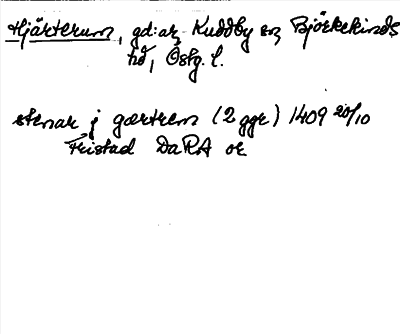 Hjärterum, gd:ar, Kuddby sn, Björkekinds
hd, Östg. l.
stenar j gærtrem (2 ggr) 1409 20/10
Fristad DaRA or